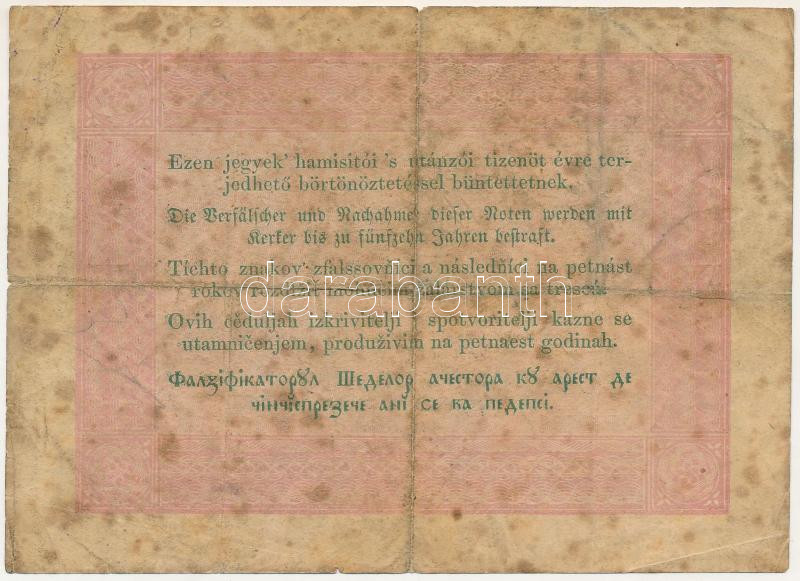 Ezen jegyek' hamisitói 's utánzói tizenöt évre ter-
jedhető börtönöztetéssel büntettetnek.
Die Verfälscher und Nachahmer dieser Noten werden mit
Kerker bis zu fünfzehn Jahren bestraft.
Tíchto znakov zfalssovňíci a následňíci na petnást
rokov
darabanth
Ovih cěduljah izkrivitelji i spotvoritelji kazne se
utamničenjem, produživim na petnaest godinah.
Фалꙁіфікаторꙋл Шеделор ачестора кꙋ арест де
чінчіспреꙁече ані се ва педепсі.